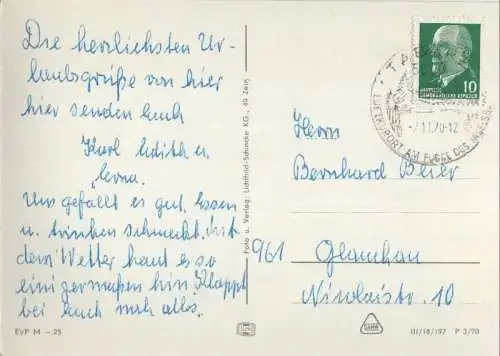 Die herzlichsten Ur-
laubsgrüße von hier
hier senden Euch
Karl Edith u.
Erna.
Uns gefällt es gut. Essen
u. trinken schmeckt. Mit
dem Wetter haut es so
einigermaßen hin. Klappt
bei Euch noch alles.
EVP M -.25
Foto u. Verlag: Lichtbild-Schincke KG., 49 Zeitz
10
DEUTSCHE
DEMOKRATISCHE REPUBLIK
LUFTKURORT AM FUSSE DES
-7.11.70-12
Herrn
Bernhard Beier
961 Glauchau
Nicolaistr. 10
III/18/197 P 3/70